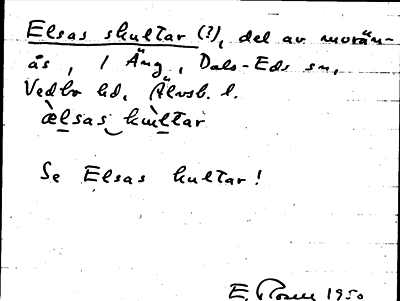 Elsas skultar (?), del av morän-
ås, i Äng, Dals-Eds sn,
Vedbo hd, Älvsb. l.
æ̀lsas kùltar
Se Elsas kultar!
E. Rosell 1950